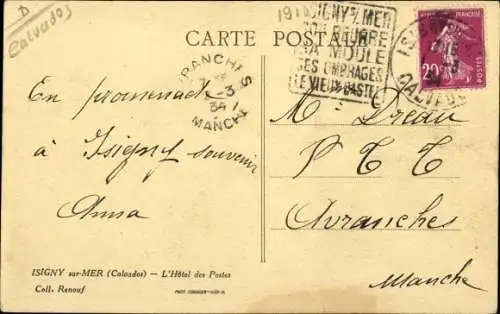 D
Calvados
CARTE POSTALE
ISIGNY S/MER
SON BEURRE
SA MOULE
SES OMBRAGES
LE VIEUX CASTEL
FRANÇAISE
20
POSTES
CALVADOS
AVRANCHES
-3
34
MANCHE
En promenade
à Isigny souvenir
Anna
M. Dreau
P T T
Avranches
Manche
ISIGNY sur-MER (Calvados) — L'Hôtel des Postes
Coll. Renouf